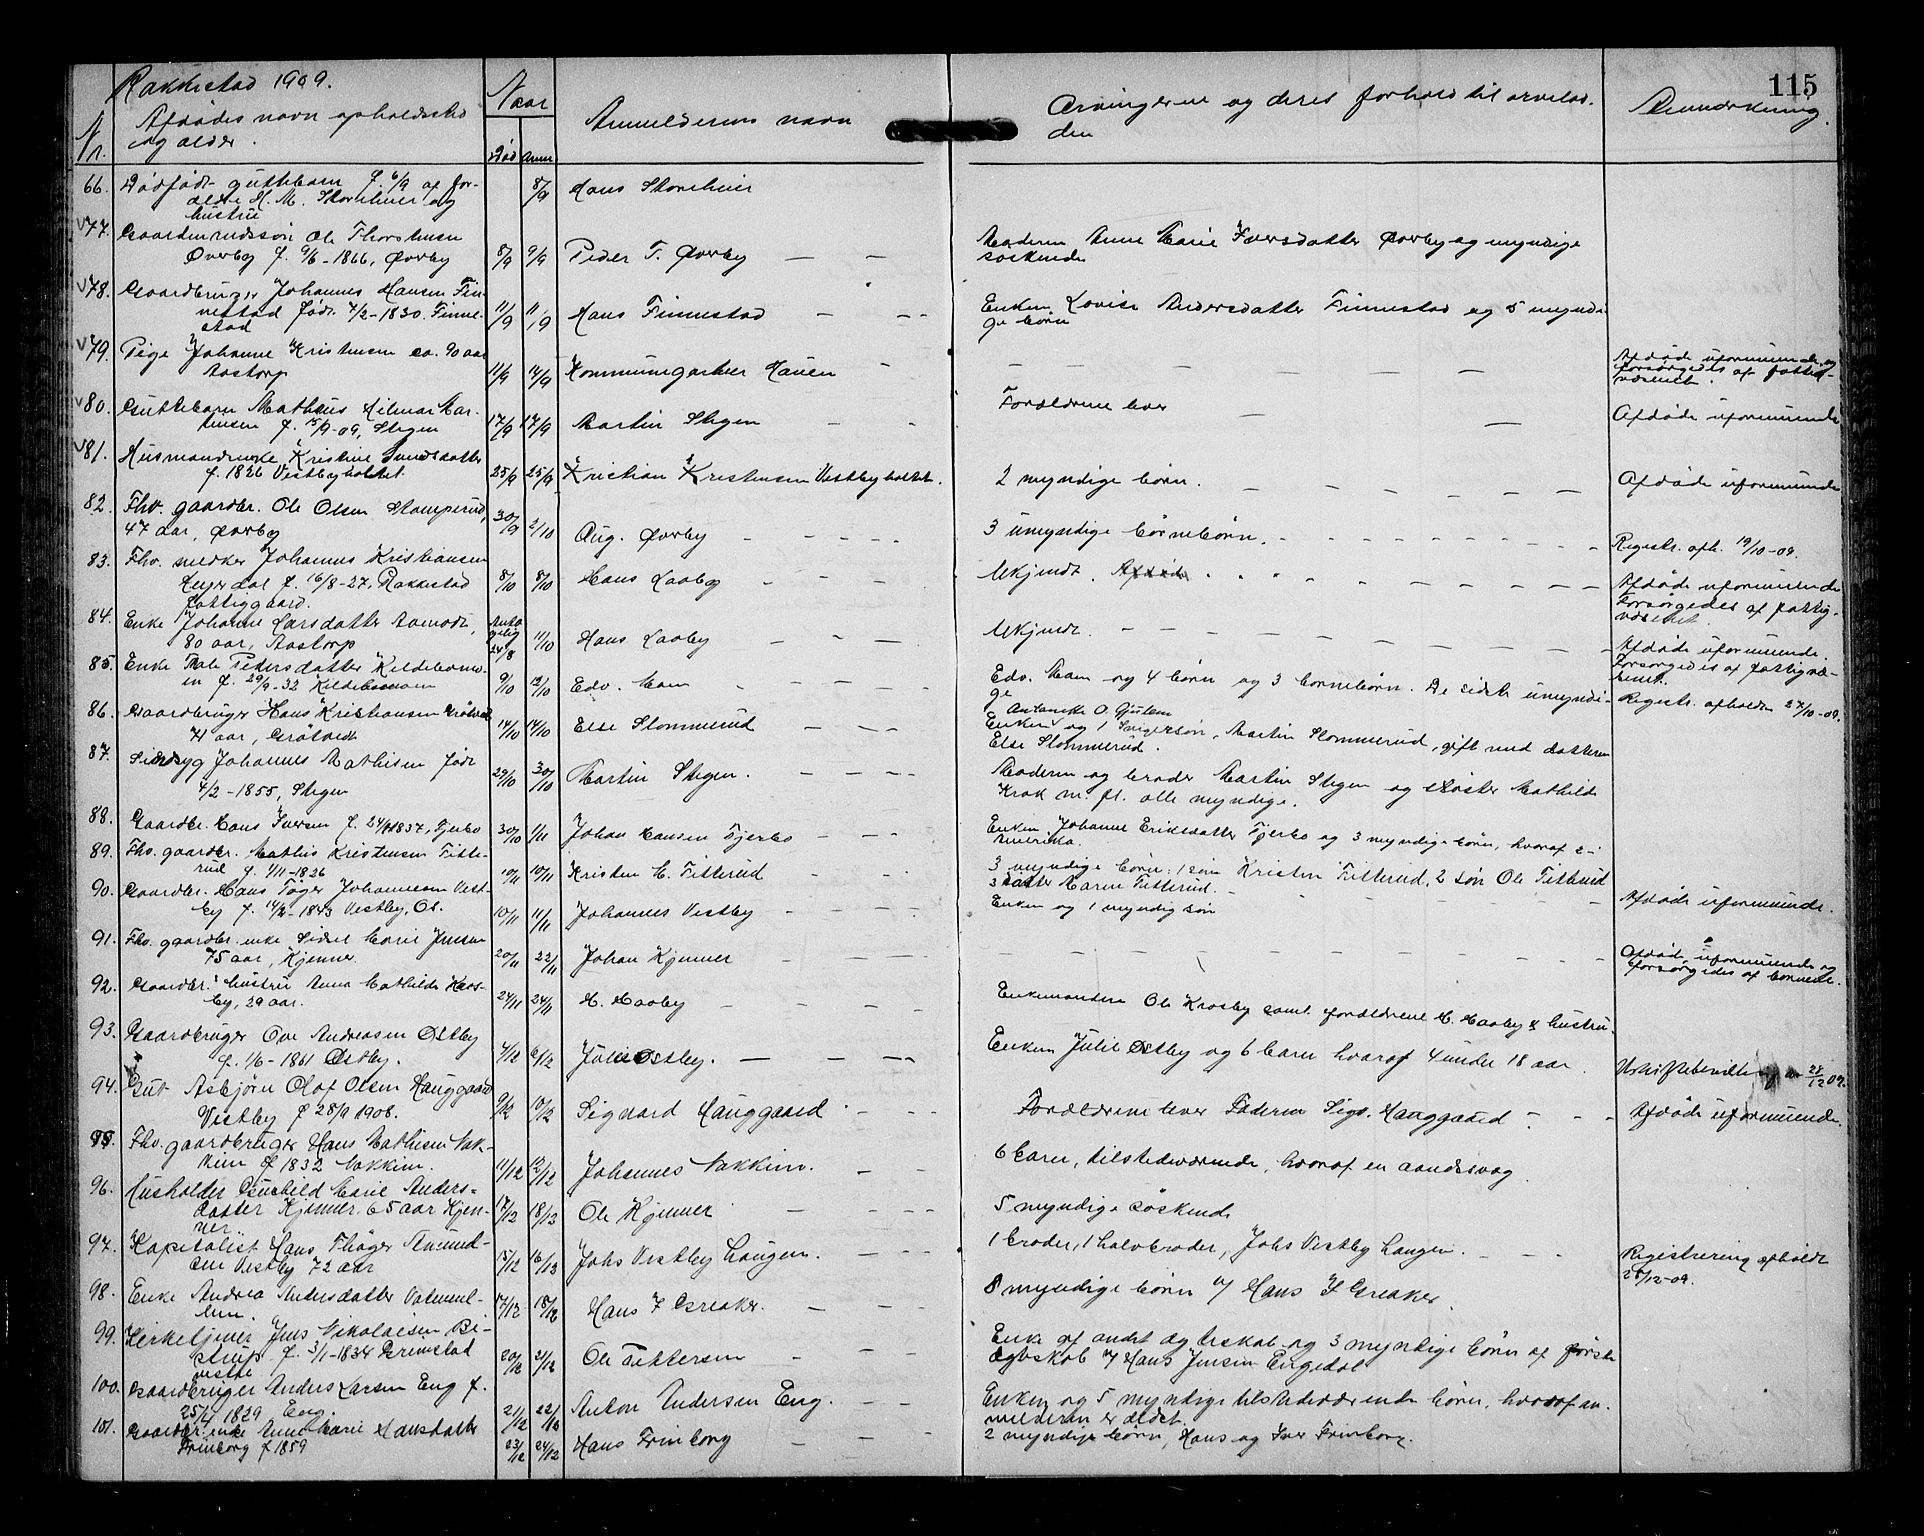 115
Rakkestad 1909.
Nr.
Afdødes navn opholdssted
og alder.
Naar
Død Anm
Anmelderens navn
Arvingerne og deres forhold til arvelad-
den
Anmærkning.
66. Dødfødt guttebarn f. 6/9 af for-
ældre H. M. Storeheier og
hustru
8/9 Hans Storeheier
77. Gaardmandssøn Ole Thorstensen
Øverby f. 9/6-1866, Øverby 8/9 9/9 Peder T. Øverby
Moderen Anne Marie Iversdatter Øverby og myndige
søskende
78. Gaardbruger Johannes Hansen Fin-
nestad født 7/2-1830. Finne-
stad
11/9 11/9 Hans Finnestad
Enken Lovise Andersdatter Finnestad og 5 myndi-
ge børn
79. Pige Johanne Kristensen ca. 90 aar
Aastorp
11/9 14/9 Kommunegartner Hauen
Afdøde uformuende og
forsørgedes af fattig-
væsenet.
80. Guttebarn Mathæus Hilmar Mar-
tinsen f. 15/9-09, Stegen 17/9 17/9 Martin Stegen
Forældrene lever
Afdøde uformuende
81. Husmandsenke Kristine
f. 1826 Vestbyholtet 25/9 25/9 Kristian Kristensen Vestbyholtet.
2 myndige børn.
Afdøde uformuende
82. Fhv. gaardbr. Ole Olsen Stamperud,
47 aar, Øverby
30/9 2/10 Aug. Øverby
3 umyndige børnebørn.
Registr. afh. 19/10-09.
83. Fhv. Johannes Kristiansen
Heyerdal f. 16/8-27, Rakkestad
fattiggaard.
8/10 8/10 Hans Laaby
Ukjendt. Afdøde
Afdøde uformuende
Forsørgedes af fattig-
væsenet.
84. Enke Johanne Larsdatter Aamodt,
80 aar, Aastorp
24/8 11/10 Hans Laaby
Ukjendt.
Afdøde uformuende.
Forsørgedes af fattigvæ-
senet.
85. Enke Pedersdatter Kildebomo-
en f. 29/9-32
9/10 12/10 Edv. Moen
Edv. Moen og 4 børn og 3 børnebørn. De sidste umyndi-
ge
Registr. afholdes 27/10-09.
86. Gaardbruger Hans Kristiansen Grøtvedt
71 aar, Grøtvedt
14/10 14/10 Else Slommerud
Antonette O. Gjulem
Enken og 1 Svigersøn, Martin Slommerud, gift med datteren
Else Slommerud.
87. Sindssyg Johannes Mathisen født
4/2-1855, Stegen
29/10 30/10 Martin Stegen.
Moderen og broder Martin Stegen og søster Mathilde
Krok m. fl. alle myndige.
88. Gaardbr. Hans Iversen f. 1837, Gjerbo 30/10 1/11 Johan Hansen Gjerbo
Enken Johanne Eriksdatter Gjerbo og 3 myndige børn, hvoraf 2 i
Amerika.
89. Fhv. gaardbr. Mathis Kristensen Titte-
rud f. 1/11-1826
10/11 10/11 Kristen M. Titterud
3 myndige børn: 1 søn Kristen Titterud, 2 søn Ole Titterud
3 datter Maren Titterud.
90. Gaardbr. Hans Tøger Johannesen Vest-
by f. 14/2-1843 Vestby, Os.
10/11 11/11 Johannes Vestby
Enken og 1 myndig søn
Afdøde uformuende.
91. Fhv. gaardbr. enke Sidsel Marie Jensen
75 aar, Kjenner
20/11 22/11 Johan Kjenner
Afdøde uformuende og
forsørgedes af børnene.
92. Gaardbr. hustru Anna Mathilde Kros-
by, 29 aar.
24/11 24/11 M. Haaby
Enkemanden Ole Krosby samt forældrene M. Haaby & hustru.
93. Gaardbruger Ove Andreasen Østby
f. 1/6-1861 Østby.
Julie Østby.
Enken Julie Østby og 6 barn hvoraf 4 under 18 aar
28/12 09.
94. Gut Asbjørn Olaf Olsen Hauggaard
Vestby f 28/9 1908.
9/12 10/12 Sigvard Hauggaard
Forældrene lever Faderen Sigv. Hauggaard
Afdøde uformuende.
95. Fhv. gaardbruger Hans Mathisen Nak-
kim f 1832 Nakkim.
11/12 12/12 Johannes Nakkim.
6 barn, tilstedeværende, hvoraf en aandssvag
96. Husholder Gunhild Marie Anders-
datter Kjenner 65 aar Kjen-
ner.
17/12 18/12 Ole Kjenner
5 myndige søskende
97. Kapitalist Hans Thøger Amund-
sen Vestby 72 aar
15/12 16/12 Johs Vestby Haugen.
1 broder, 1 halvbroder, Johs Vestby Haugen.
Registrering afholdt
28/12-09.
98. Enke Andrea Andersdatter
17/12 18/12 Hans J Greaker.
8 myndige børn v/ Hans J Greaker.
99. Kirketjener Jens Nikolaisen Bi-
strup f. 3/1-1834 Grimstad
vestre
20/12 21/12 Ole Tittersen
Enke af andet ægteskab og 3 myndige børn af første
ægteskab v/ Hans Jensen Engedal
100. Gaardbruger Anders Larsen Eng f.
25/4 1829 Eng.
21/12 22/12 Anton Andersen Eng.
Enken og 5 myndige tilstedeværende børn, hvoraf an-
melderen er ældst.
101. Gaardbr. enke Anne Marie Hansdatter
Frinborg f 1859
23/12 24/12 Hans Frinborg
2 myndige børn, Hans og Iver Frinborg.